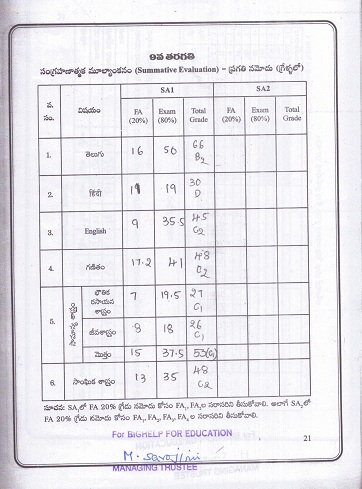 9వ తరగతి
సంగ్రహణాత్మక మూల్యాంకనం (Summative Evaluation) – ప్రగతి నమోదు (గ్రేళ్ళలో)
వ. సం. విషయం SA1 SA2
FA (20%) Exam (80%) Total Grade FA (20%) Exam (80%) Total Grade
1. తెలుగు 16 50 66 B2
2. हिंदी 11 19 30 D
3. English 9 35.5 45 C2
4. గణితం 17.2 41
5. సామాన్య శాస్త్రం
భౌతిక రసాయన శాస్త్రం 7 19.5 27 C1
జీవశాస్త్రం 8 18 26 C1
మొత్తం 15 37.5 53 (C1)
6. సాంఘిక శాస్త్రం 13 35 48 C2
సూచన: SA1లో FA 20% గ్రేడు నమోదు కోసం FA1, FA2ల సరాసరిని తీసుకోవాలి. అలాగే SA2లో
FA 20% గ్రేడ్ నమోదు కోసం FA1, FA2, FA3, FA4 ల సరాసరి తీసుకోవాలి.
For BIGHELP FOR EDUCATION
21
M. Sarojini
MANAGING TRUSTEE